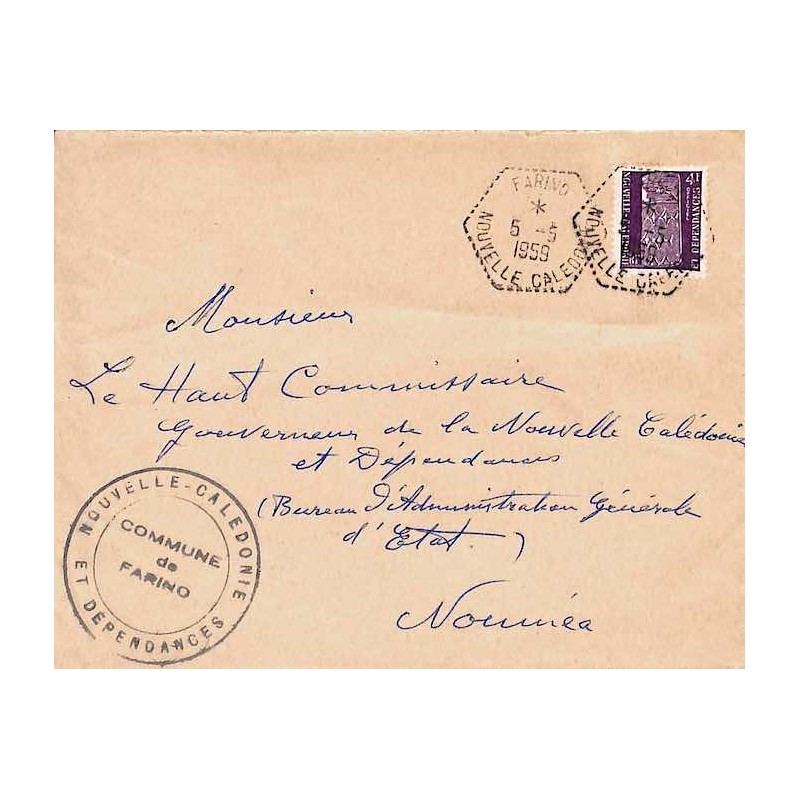 FARINO
5 -5
1959
NOUVELLE CALEDONIE
-5
NOUVELLE CALED
ET DEPENDANCES
Monsieur
Le Haut Commissaire
Gouverneur de la Nouvelle Calédonie
et Dépendances
(Bureau d'Administration Générale
d'Etat.)
Nouméa
NOUVELLE-CALEDONIE
COMMUNE
de
FARINO
ET DÉPENDANCES